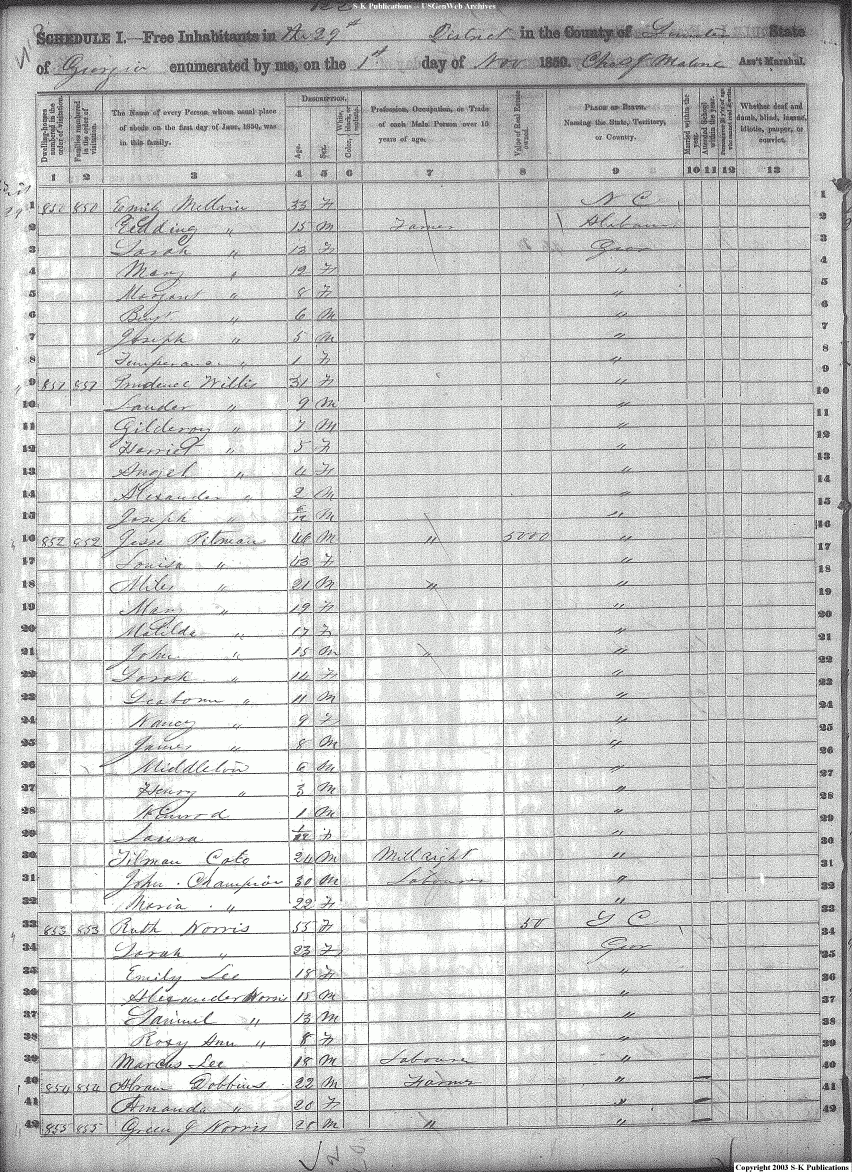 S-K Publications -- USGenWeb Archives
SCHEDULE I.—Free Inhabitants in The 29th District in the County of State
of Georgia enumerated by me, on the 1st day of Nov 1850. Chas J Malone Ass't Marshal.
Dwelling-houses numbered in the order of visitation. Families numbered in the order of visitation. The Name of every Person whose usual place of abode on the first day of June, 1850, was in this family. DESCRIPTION. Age. Sex. Color, White, black, or mulatto. Profession, Occupation, or Trade of each Male Person over 15 years of age. Value of Real Estate owned. PLACE OF BIRTH. Naming the State, Territory, or Country. Married within the year. Attended School within the year. Whether deaf and dumb, blind, insane, idiotic, pauper, or convict.
1 2 3 4 5 6 7 8 9 10 11 12 13
1 850 850 Emily 33 F N C 1
2 Redding " 15 M Farmer Alabama 2
3 Sarah " 13 F Geor 3
4 Mary " 12 F " 4
5 Margaret " 8 F " 5
6 Benj " 6 M " 6
7 Joseph " 5 M " 7
8 Temperance " 1 F " 8
9 851 851 Prudence Willis 31 F " 9
10 Lauder " 9 M " 10
11 Gilderoy " 7 M " 11
12 Harriet " 5 F " 12
13 Angel " 4 F " 13
14 Alexander " 2 M " 14
15 Joseph " 6/12 M " 15
16 852 852 Jesse Pitman 46 M " 5000 " 16
17 Louisa " 43 F " 17
18 Miles " 21 M " " 18
19 Mary " 19 F " 19
20 Matilda " 17 F " 20
21 John " 15 M " " 21
22 Sarah " 14 F " 22
23 Seaborn " 11 M " 23
24 Nancy " 9 F " 24
25 James " 8 M " 25
26 Middleton 6 M " 26
27 Henry " 3 M " 27
28 1 M " 28
29 Laura 1/12 F " 29
30 Tilman Cato 24 M Millright " 30
31 John Champion 30 M Labourer " 31
32 Maria " 22 F " 32
33 853 853 Ruth Norris 55 F 50 S C 33
34 Sarah " 23 F Geor 34
35 Emily Lee 18 F " 35
36 Alexander Norris 15 M " 36
37 Samuel " 13 M " 37
38 Roxy Ann " 8 F " 38
39 Marcus Lee 18 M Labourer " 39
40 854 854 Abram Dobbins 22 M Farmer " 40
41 Amanda " 20 F " 41
42 855 855 Green J Norris 28 M " " 42
Copyright 2003 S-K Publications